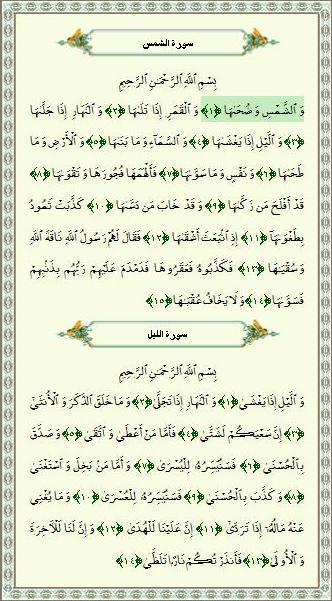 سورة الشمس
بِسْمِ اللَّهِ الرَّحْمَٰنِ الرَّحِيمِ
وَ ٱلشَّمْسِ وَ ضُحَىٰهَا ﴿١﴾ وَ ٱلْقَمَرِ إِذَا تَلَىٰهَا ﴿٢﴾ وَ ٱلنَّهَارِ إِذَا جَلَّىٰهَا
﴿٣﴾ وَ ٱلَّيْلِ إِذَا يَغْشَىٰهَا ﴿٤﴾ وَ ٱلسَّمَآءِ وَ مَا بَنَىٰهَا ﴿٥﴾ وَ ٱلْأَرْضِ وَ مَا
طَحَىٰهَا ﴿٦﴾ وَ نَفْسٍ وَ مَا سَوَّىٰهَا ﴿٧﴾ فَأَلْهَمَهَا فُجُورَهَا وَ تَقْوَىٰهَا ﴿٨﴾
قَدْ أَفْلَحَ مَن زَكَّىٰهَا ﴿٩﴾ وَ قَدْ خَابَ مَن دَسَّىٰهَا ﴿١٠﴾ كَذَّبَتْ ثَمُودُ
بِطَغْوَىٰهَآ ﴿١١﴾ إِذِ ٱنۢبَعَثَ أَشْقَىٰهَا ﴿١٢﴾ فَقَالَ لَهُمْ رَسُولُ ٱللَّهِ نَاقَةَ ٱللَّهِ
وَ سُقْيَىٰهَا ﴿١٣﴾ فَكَذَّبُوهُ فَعَقَرُوهَا فَدَمْدَمَ عَلَيْهِمْ رَبُّهُم بِذَنۢبِهِمْ
فَسَوَّىٰهَا ﴿١٤﴾ وَ لَا يَخَافُ عُقْبَىٰهَا ﴿١٥﴾
سورة الليل
بِسْمِ اللَّهِ الرَّحْمَٰنِ الرَّحِيمِ
وَ ٱلَّيْلِ إِذَا يَغْشَىٰ ﴿١﴾ وَ ٱلنَّهَارِ إِذَا تَجَلَّىٰ ﴿٢﴾ وَ مَا خَلَقَ ٱلذَّكَرَ وَ ٱلْأُنثَىٰٓ
﴿٣﴾ إِنَّ سَعْيَكُمْ لَشَتَّىٰ ﴿٤﴾ فَأَمَّا مَنْ أَعْطَىٰ وَ ٱتَّقَىٰ ﴿٥﴾ وَ صَدَّقَ
بِٱلْحُسْنَىٰ ﴿٦﴾ فَسَنُيَسِّرُهُۥ لِلْيُسْرَىٰ ﴿٧﴾ وَ أَمَّا مَنۢ بَخِلَ وَ ٱسْتَغْنَىٰ
﴿٨﴾ وَ كَذَّبَ بِٱلْحُسْنَىٰ ﴿٩﴾ فَسَنُيَسِّرُهُۥ لِلْعُسْرَىٰ ﴿١٠﴾ وَ مَا يُغْنِى
عَنْهُ مَالُهُۥٓ إِذَا تَرَدَّىٰٓ ﴿١١﴾ إِنَّ عَلَيْنَا لَلْهُدَىٰ ﴿١٢﴾ وَ إِنَّ لَنَا لَلْءَاخِرَةَ
وَ ٱلْأُولَىٰ ﴿١٣﴾ فَأَنذَرْتُكُمْ نَارًا تَلَظَّىٰ ﴿١٤﴾